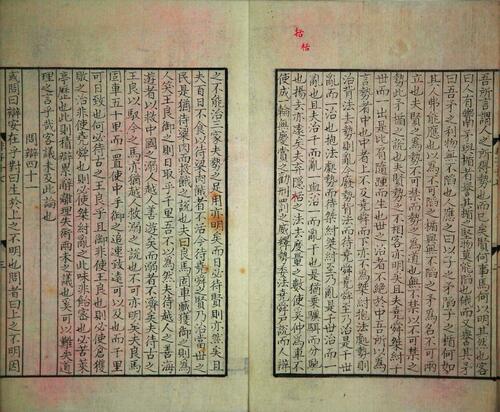 吾所言謂人之所得勢也而已矣賢何事焉何以明其然也客
曰人有鬻矛與楯者譽其楯之堅物莫能陷也俄而又譽其矛
曰吾矛之利物無不陷也人應之曰以子之矛陷子之楯何如
其人弗能應也以為不可陷之楯與無不陷之矛為名不可兩
立也夫賢之為勢不可禁而勢之為道也無不禁以不可禁之
勢此矛楯之說也夫賢勢之不相容亦明矣且夫堯舜桀紂千
世而一出是比肩隨踵而生也世之治者不絕於中吾所以為
言勢者中也中者上不及堯舜而下亦不為桀紂抱法處勢則
治背法去勢則亂今廢勢背法而待堯舜堯舜至乃治是千世
亂而一治也抱法處勢而待桀紂桀紂至乃亂是千世治而一
亂也且夫治千而亂一與治一而亂千也是猶乘驥駬而分馳
也相去亦遠矣夫棄隱栝之法去度量之數使奚仲為車不
能成一輪無慶賞之勸刑罰之威釋勢委法堯舜戶說而人辯
之不能治三家夫勢之足用亦明矣而曰必待賢則亦然矣且
夫百日不食以待粱肉餓者不活今待堯舜之賢乃治當世之
民是猶待粱肉而救餓之說也夫曰良馬固車臧獲御之則為
人笑王良御之則日取乎千里吾不以為然夫待越人之善海
遊者以救中國之溺人越人善游矣而溺者不濟矣夫待古之
王良以馭今之馬亦猶越人救溺之說也不可亦明矣夫良馬
固車五十里而一置使中手御之追速致遠可以及也而千里
可日致也何必待古之王良乎且御非使王良也則必使臧獲
敗之治非使堯舜也則必使桀紂亂之此味非飴蜜也必苦菜
亭歷也此則積辯累辭離理失術兩末之議也奚可以難夫道
理之言乎哉客議未及此論也
問辯四十一
或問曰辯安生乎對曰生於上之不明也問者曰上之不明因